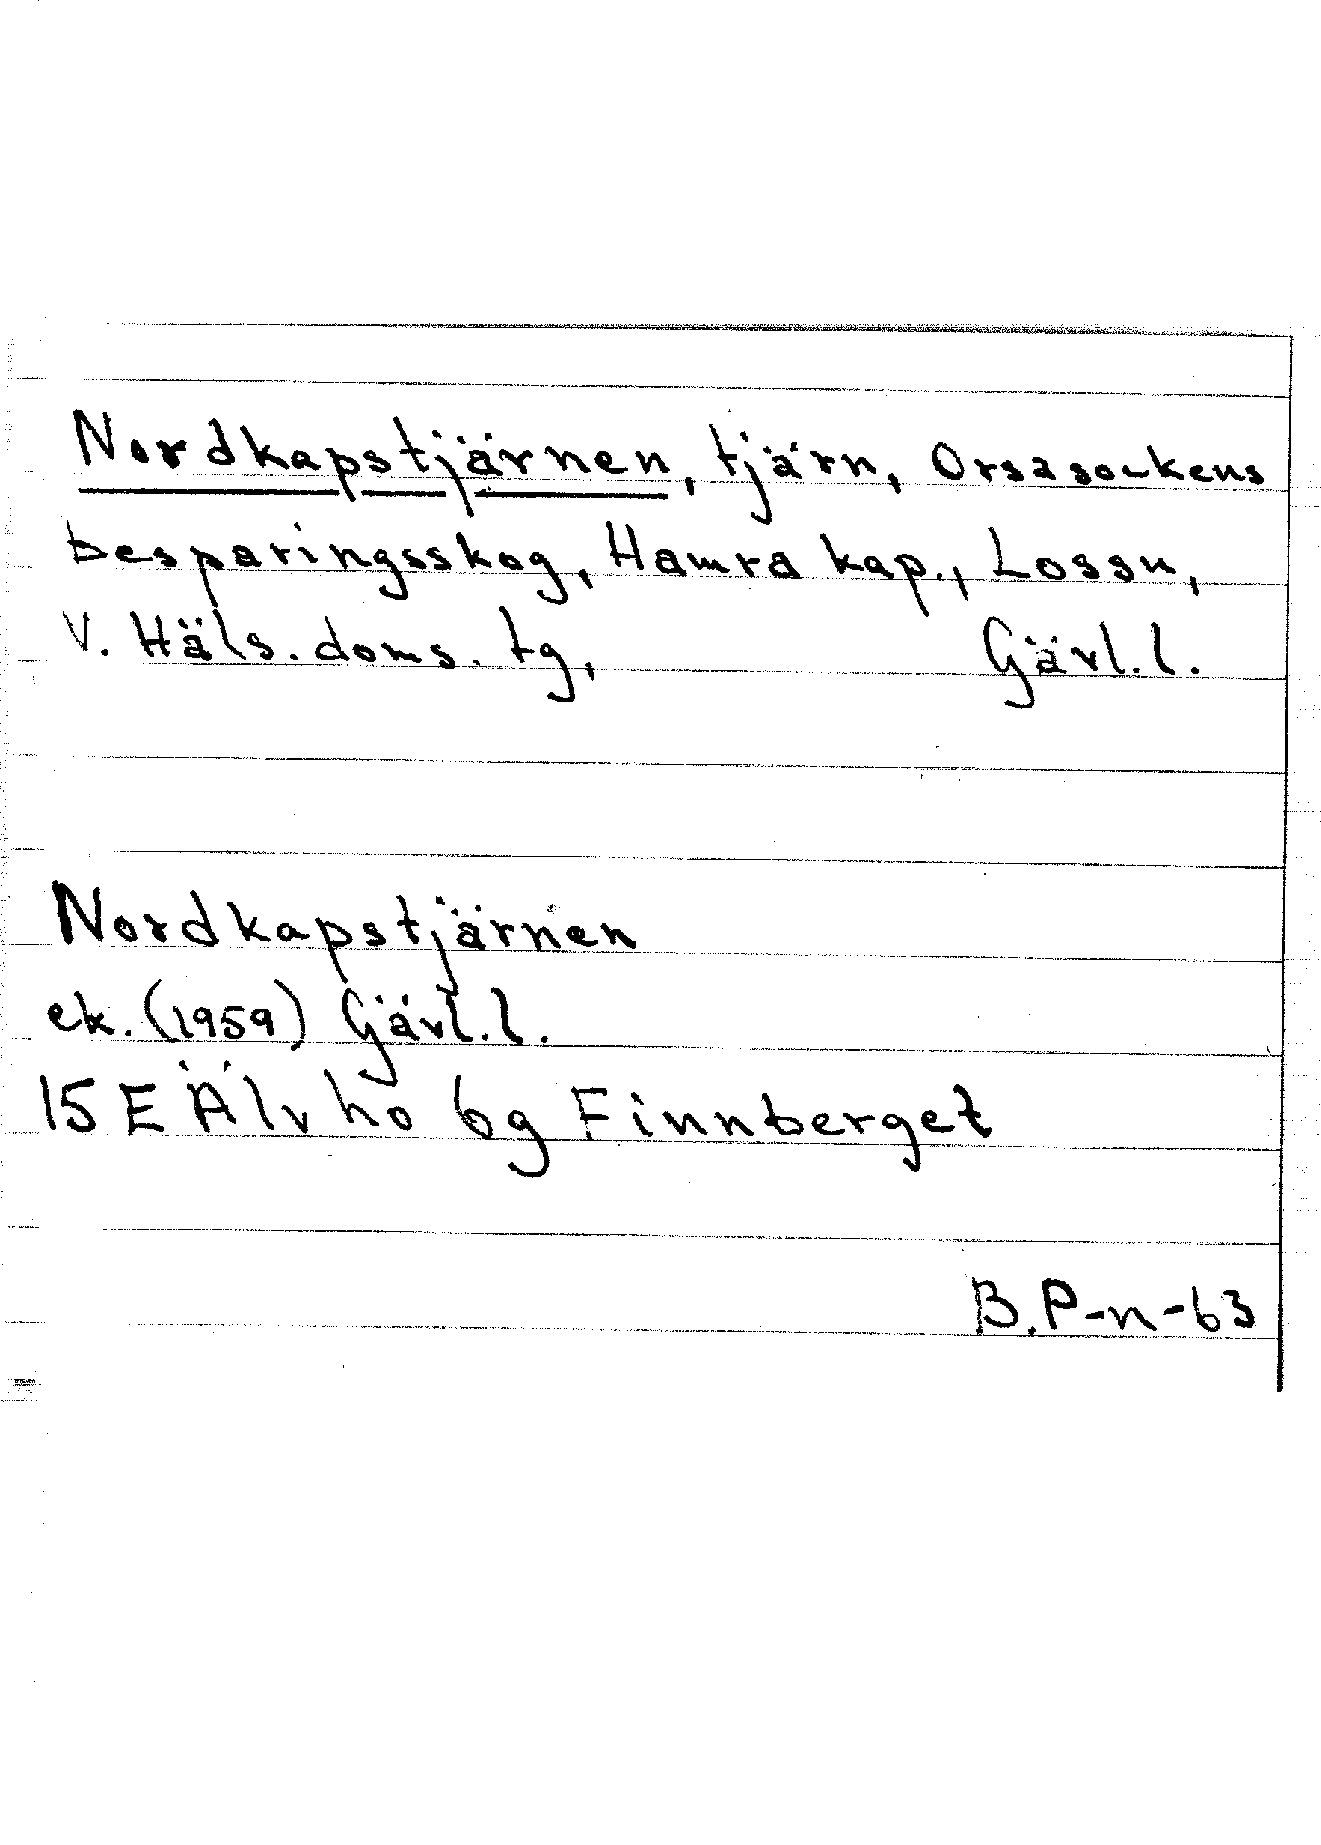 Nordkapstjärnen, tjärn, Orsa sockens
besparingsskog, Hamra kap., Lossn,
V. Häls. doms. tg, Gävl. l.
Nordkapstjärnen
ek. (1959) Gävl. l.
15 E Älvho 6g Finnberget
B. P-n-63